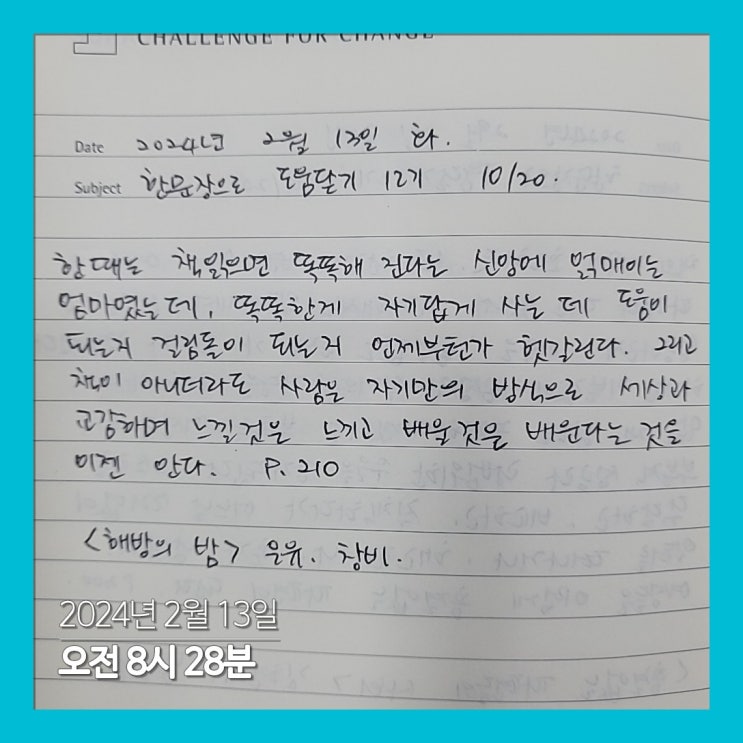 CHALLENGE FOR CHANGE
Date 2024년 2월 13일 화.
Subject 한문장으로 도움닫기 12기 10/20.
한때는 책읽으면 똑똑해 진다는 신앙에 얽매이는
엄마였는데, 똑똑한게 자기답게 사는 데 도움이
되는지 걸림돌이 되는지 언제부턴가 헷갈린다. 그리고
책이 아니더라도 사람은 자기만의 방식으로 세상과
교감하며 느낄것은 느끼고 배울것을 배운다는 것을
이젠 안다. P. 210
<해방의 밤> 은유. 창비.
2024년 2월 13일
오전 8시 28분